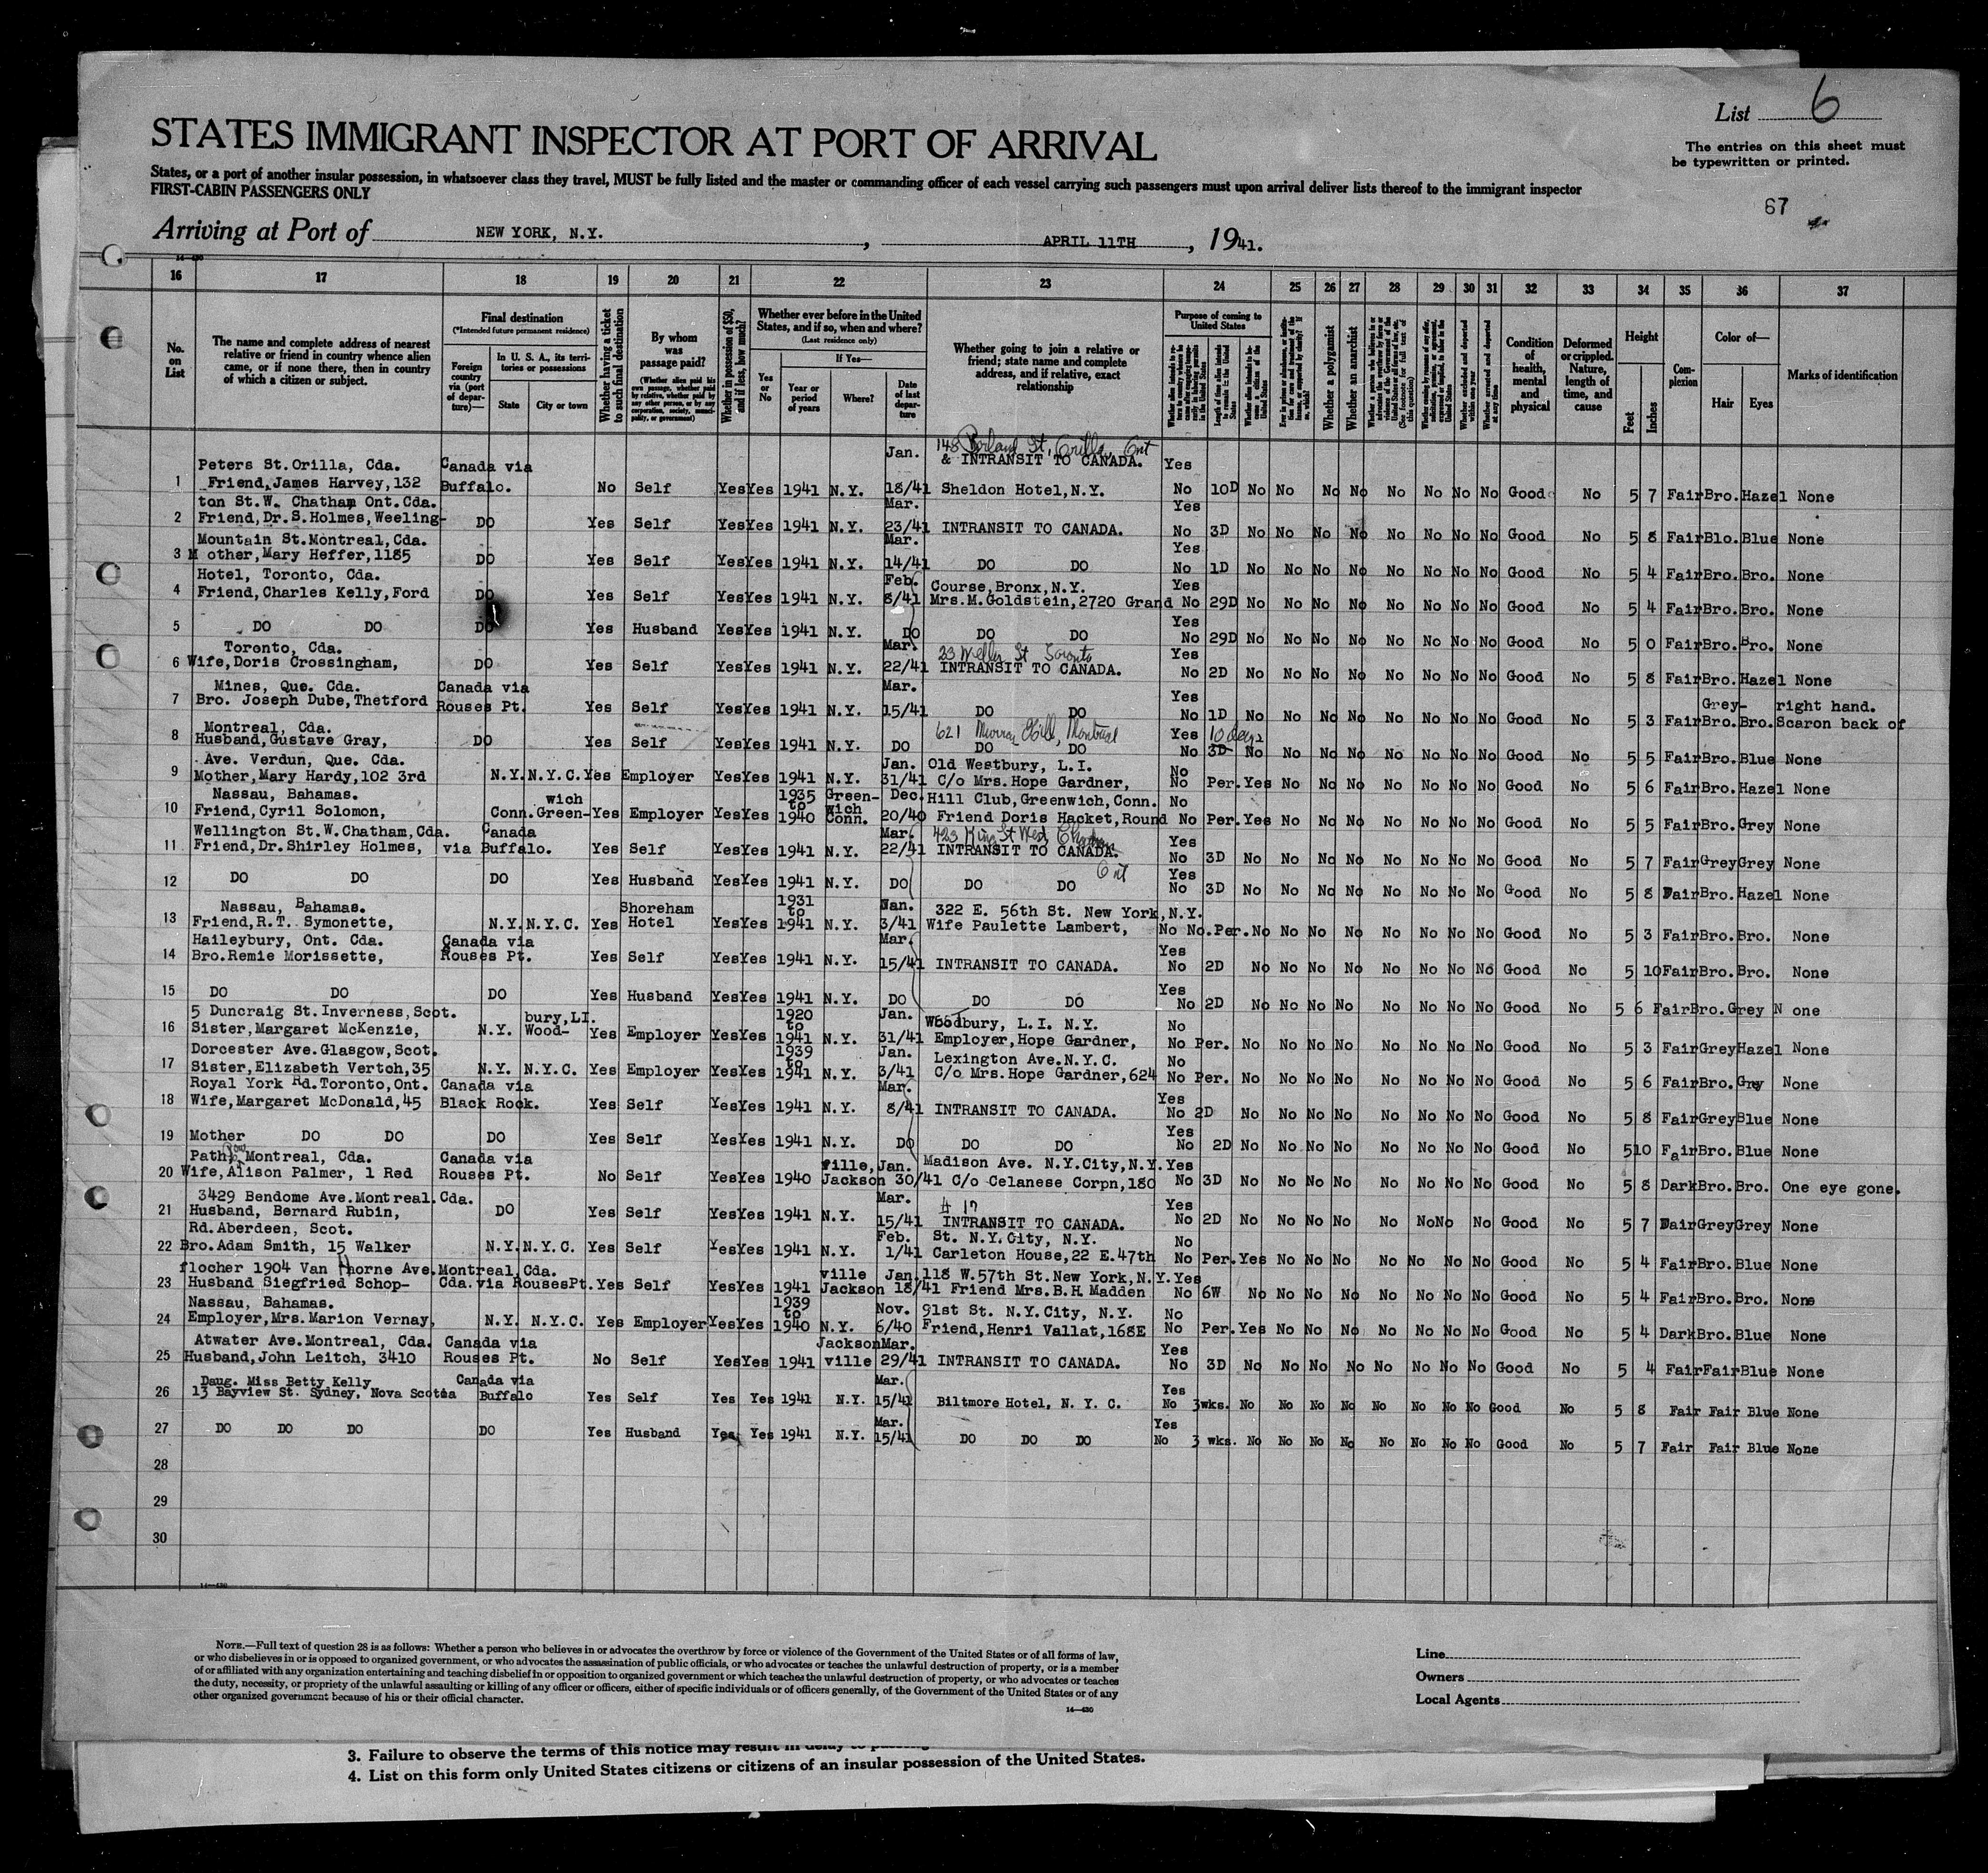 List 6
STATES IMMIGRANT INSPECTOR AT PORT OF ARRIVAL
The entries on this sheet must
be typewritten or printed.
States, or a port of another insular possession, in whatsoever class they travel, MUST be fully listed and the master or commanding officer of each vessel carrying such passengers must upon arrival deliver lists thereof to the immigrant inspector
FIRST-CABIN PASSENGERS ONLY
67
Arriving at Port of NEW YORK, N.Y. , APRIL 11TH , 1941.
14-430
16 17 18 19 20 21 22 23 24 25 26 27 28 29 30 31 32 33 34 35 36 37
No. on List
The name and complete address of nearest relative or friend in country whence alien came, or if none there, then in country of which a citizen or subject.
Final destination
(*Intended future permanent residence)
Foreign country via (port of departure)—
In U. S. A., its territories or possessions
State
City or town
Whether having a ticket to such final destination
By whom was passage paid?
(Whether alien paid his own passage, whether paid by relative, whether paid by any other person, or by any corporation, society, municipality, or government)
Whether in possession of $50, and if less, how much?
Whether ever before in the United States, and if so, when and where?
(Last residence only)
Yes or No
If Yes—
Year or period of years
Where?
Date of last departure
Whether going to join a relative or friend; state name and complete address, and if relative, exact relationship
Purpose of coming to United States
Length of time alien intends to remain in the United States
Whether alien intends to become a citizen of the United States
Whether a polygamist
Whether an anarchist
Whether excluded and deported within one year
Whether arrested and deported at any time
Condition of health, mental and physical
Deformed or crippled. Nature, length of time, and cause
Height
Feet
Inches
Complexion
Color of—
Hair
Eyes
Marks of identification
Peters St. Orilla, Cda. Canada via Jan. 148 St, Orillia, Ont & INTRANSIT TO CANADA. Yes
1 Friend, James Harvey, 132 Buffalo. No Self Yes Yes 1941 N.Y. 18/41 Sheldon Hotel, N.Y. No 10D No No No No No No No No Good No 5 7 Fair Bro. Hazel None
ton St.W. Chatham Ont.Cda. Mar. Yes
2 Friend, Dr.S.Holmes, Weeling- DO Yes Self Yes Yes 1941 N.Y. 23/41 INTRANSIT TO CANADA. No 3D No No No No No No No No Good No 5 8 Fair Blo. Blue None
Mountain St.Montreal, Cda. Mar. Yes
3 M other, Mary Heffer, 1185 DO Yes Self Yes Yes 1941 N.Y. 14/41 DO DO No 1D No No No No No No No No Good No 5 4 Fair Bro. Bro. None
Hotel, Toronto, Cda. Feb. Course, Bronx, N.Y. Yes
4 Friend, Charles Kelly, Ford DO Yes Self Yes Yes 1941 N.Y. 8/41 Mrs.M.Goldstein, 2720 Grand No 29D No No No No No No No No Good No 5 4 Fair Bro. Bro. None
Yes
5 DO DO DO Yes Husband Yes Yes 1941 N.Y. DO DO DO No 29D No No No No No No No No Good No 5 0 Fair Bro. Bro. None
Toronto, Cda. Mar. 23 St Toronto Yes
6 Wife, Doris Crossingham, DO Yes Self Yes Yes 1941 N.Y. 22/41 INTRANSIT TO CANADA. No 2D No No No No No No No No Good No 5 8 Fair Bro. Hazel None
Mines, Que. Cda. Canada via Mar. Yes Grey- right hand.
7 Bro. Joseph Dube, Thetford Rouses Pt. Yes Self Yes Yes 1941 N.Y. 15/41 DO DO No 1D No No No No No No No No Good No 5 3 Fair Bro. Bro. Scaron back of
Montreal, Cda. 621 Murray Hill, Montreal Yes 10 days
8 Husband, Gustave Gray, DO Yes Self Yes Yes 1941 N.Y. DO DO DO No 3D No No No No No No No No Good No 5 5 Fair Bro. Blue None
Ave. Verdun, Que. Cda. Jan. Old Westbury, L.I. No
9 Mother, Mary Hardy, 102 3rd N.Y. N.Y.C. Yes Employer Yes Yes 1941 N.Y. 31/41 C/o Mrs. Hope Gardner, No Per. Yes No No No No No No No Good No 5 6 Fair Bro. Hazel None
Nassau, Bahamas. wich 1935 to Green- wich Dec. Hill Club, Greenwich, Conn. No
10 Friend, Cyril Solomon, Conn. Green- Yes Employer Yes Yes 1940 Conn. 20/40 Friend Doris Hacket, Round No Per. Yes No No No No No No No Good No 5 5 Fair Bro. Grey None
Wellington St.W.Chatham, Cda. Canada Mar. 423 King St West Chatham Ont Yes
11 Friend, Dr. Shirley Holmes, via Buffalo. Yes Self Yes Yes 1941 N.Y. 22/41 INTRANSIT TO CANADA. No 3D No No No No No No No No Good No 5 7 Fair Grey Grey None
Yes
12 DO DO DO Yes Husband Yes Yes 1941 N.Y. DO DO DO No 3D No No No No No No No No Good No 5 8 Fair Bro. Hazel None
Nassau, Bahamas. Shoreham 1931 to Jan. 322 E. 56th St. New York, N.Y.
13 Friend, R.T. Symonette, N.Y. N.Y.C. Yes Hotel Yes Yes 1941 N.Y. 3/41 Wife Paulette Lambert, No No. Per. No No No No No No No No Good No 5 3 Fair Bro. Bro. None
Haileybury, Ont. Cda. Canada via Mar. Yes
14 Bro. Remie Morissette, Rouses Pt. Yes Self Yes Yes 1941 N.Y. 15/41 INTRANSIT TO CANADA. No 2D No No No No No No No No Good No 5 10 Fair Bro. Bro. None
Yes
15 DO DO DO Yes Husband Yes Yes 1941 N.Y. DO DO DO No 2D No No No No No No No No Good No 5 6 Fair Bro. Grey N one
5 Duncraig St. Inverness, Scot. bury, LI. 1920 to Jan. Woodbury, L.I. N.Y. No
16 Sister, Margaret McKenzie, N.Y. Wood- Yes Employer Yes Yes 1941 N.Y. 31/41 Employer, Hope Gardner, No Per. No No No No No No No No Good No 5 3 Fair Grey Hazel None
Dorcester Ave. Glasgow, Scot. 1939 to Jan. Lexington Ave. N.Y.C. No
17 Sister, Elizabeth Vertch, 35 N.Y. N.Y.C. Yes Employer Yes Yes 1941 N.Y. 3/41 C/o Mrs. Hope Gardner, 624 No Per. No No No No No No No No Good No 5 6 Fair Bro. Grey None
Royal York Rd. Toronto, Ont. Canada via Mar. Yes
18 Wife, Margaret McDonald, 45 Black Rock. Yes Self Yes Yes 1941 N.Y. 8/41 INTRANSIT TO CANADA. No 2D No No No No No No No No Good No 5 8 Fair Grey Blue None
Yes
19 Mother DO DO DO Yes Self Yes Yes 1941 N.Y. DO DO DO No 2D No No No No No No No No Good No 5 10 Fair Bro. Blue None
Path, Montreal, Cda. Canada via ville, Jan. Madison Ave. N.Y.City, N.Y. Yes
20 Wife, Alison Palmer, 1 Red Rouses Pt. No Self Yes Yes 1940 Jackson 30/41 C/o Celanese Corpn, 180 No 3D No No No No No No No No Good No 5 8 Dark Bro. Bro. One eye gone.
3429 Bendome Ave. Montreal. Cda. Mar. # 17 Yes
21 Husband, Bernard Rubin, DO Yes Self Yes Yes 1941 N.Y. 15/41 INTRANSIT TO CANADA. No 2D No No No No No No No No Good No 5 7 Fair Grey Grey None
Rd. Aberdeen, Scot. Feb. St. N.Y. City, N.Y. No
22 Bro. Adam Smith, 15 Walker N.Y. N.Y.C. Yes Self Yes Yes 1941 N.Y. 1/41 Carleton House, 22 E. 47th No Per. Yes No No No No No No No Good No 5 4 Fair Bro. Blue None
flocher 1904 Van Horne Ave. Montreal, Cda. ville Jan. 118 W. 57th St. New York, N.Y. Yes
23 Husband Siegfried Schop- Cda. via Rouses Pt. Yes Self Yes Yes 1941 Jackson 18/41 Friend Mrs. B.H. Madden No 6W No No No No No No No No Good No 5 4 Fair Bro. Bro. None
Nassau, Bahamas. 1939 to Nov. 91st St. N.Y.City, N.Y. No
24 Employer, Mrs. Marion Vernay, N.Y. N.Y.C. Yes Employer Yes Yes 1940 N.Y. 6/40 Friend, Henri Vallat, 168E No Per. Yes No No No No No No No Good No 5 4 Dark Bro. Blue None
Atwater Ave. Montreal, Cda. Canada via Jackson Mar. Yes
25 Husband, John Leitch, 3410 Rouses Pt. No Self Yes Yes 1941 ville 29/41 INTRANSIT TO CANADA. No 3D No No No No No No No No Good No 5 4 Fair Fair Blue None
Daug. Miss Betty Kelly Canada via Mar. Yes
26 13 Bayview St. Sydney, Nova Scotia Buffalo Yes Self Yes Yes 1941 N.Y. 15/41 Biltmore Hotel, N. Y. C. No 3wks. No No No No No No No No Good No 5 8 Fair Fair Blue None
Mar. Yes
27 DO DO DO DO Yes Husband Yes Yes 1941 N.Y. 15/41 DO DO DO No 3 wks. No No No No No No No No Good No 5 7 Fair Fair Blue None
28
29
30
14-430
NOTE.—Full text of question 28 is as follows: Whether a person who believes in or advocates the overthrow by force or violence of the Government of the United States or of all forms of law,
or who disbelieves in or is opposed to organized government, or who advocates the assassination of public officials, or who advocates or teaches the unlawful destruction of property, or is a member
of or affiliated with any organization entertaining and teaching disbelief in or opposition to organized government or which teaches the unlawful destruction of property, or who advocates or teaches
the duty, necessity, or propriety of the unlawful assaulting or killing of any officer or officers, either of specific individuals or of officers generally, of the Government of the United States or of any
other organized government because of his or their official character.
14-430
Line
Owners
Local Agents
3. Failure to observe the terms of this notice may result in delay to
4. List on this form only United States citizens or citizens of an insular possession of the United States.